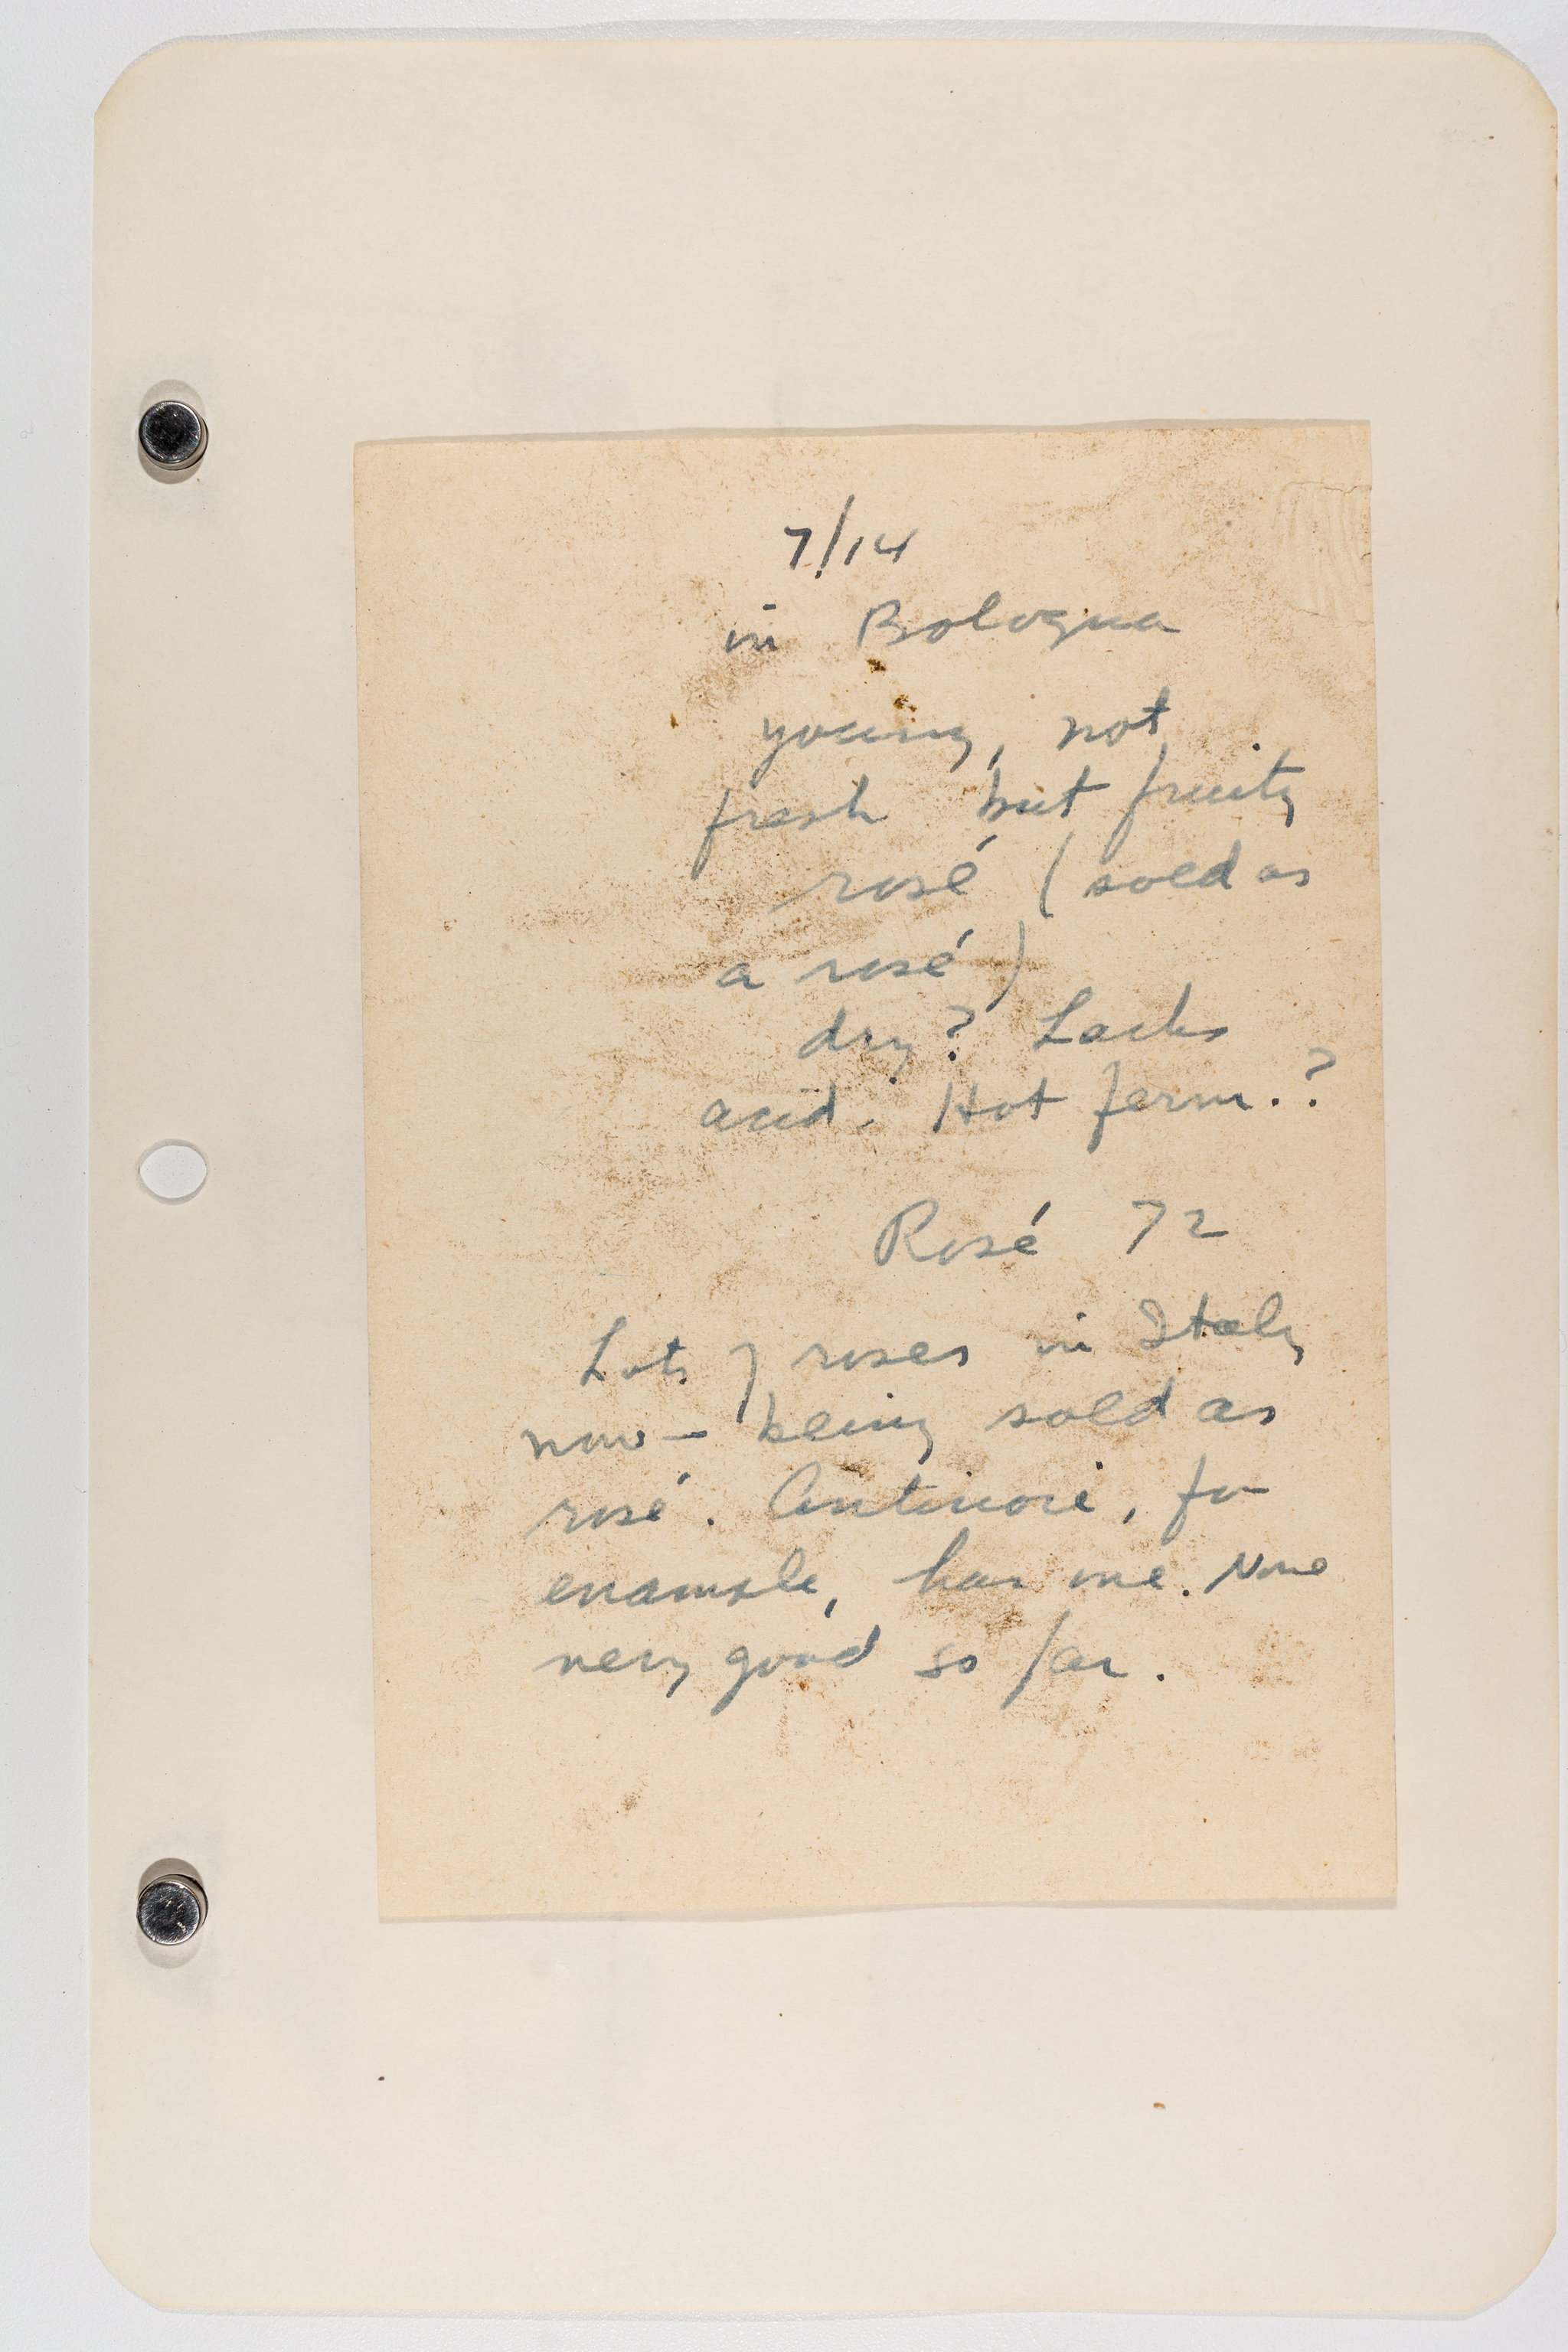 7/14
in Bologna
young, not
fresh but fruity
rosé (sold as
a rosé)
dry? Lacks
acid. Hot ferm.?
Rosé 72
Lots of roses in Italy
now - being sold as
rosé. Antinori, for
example, has one. None
very good so far.